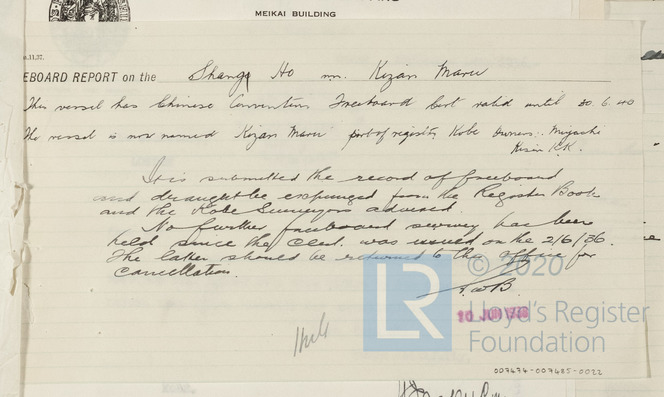 MEIKAI BUILDING
EBOARD REPORT on the Shang Ho nn. Kozan Maru
This vessel has Chinese Convention Freeboard Cert valid until 30.6.40
The vessel is now named Kozan Maru port of registry Kobe Owners:
Kisen K.K.
It is submitted the record of freeboard
and draught be expunged from the Register Book
and the Kobe Surveyors advised.
No further freeboard survey has been
held since the Cert. was issued on the 2/6/36.
The latter should be returned to this Office for
cancellation.
10 JUN
LR
© 2020
Lloyd's Register
Foundation
007474-007485-0022